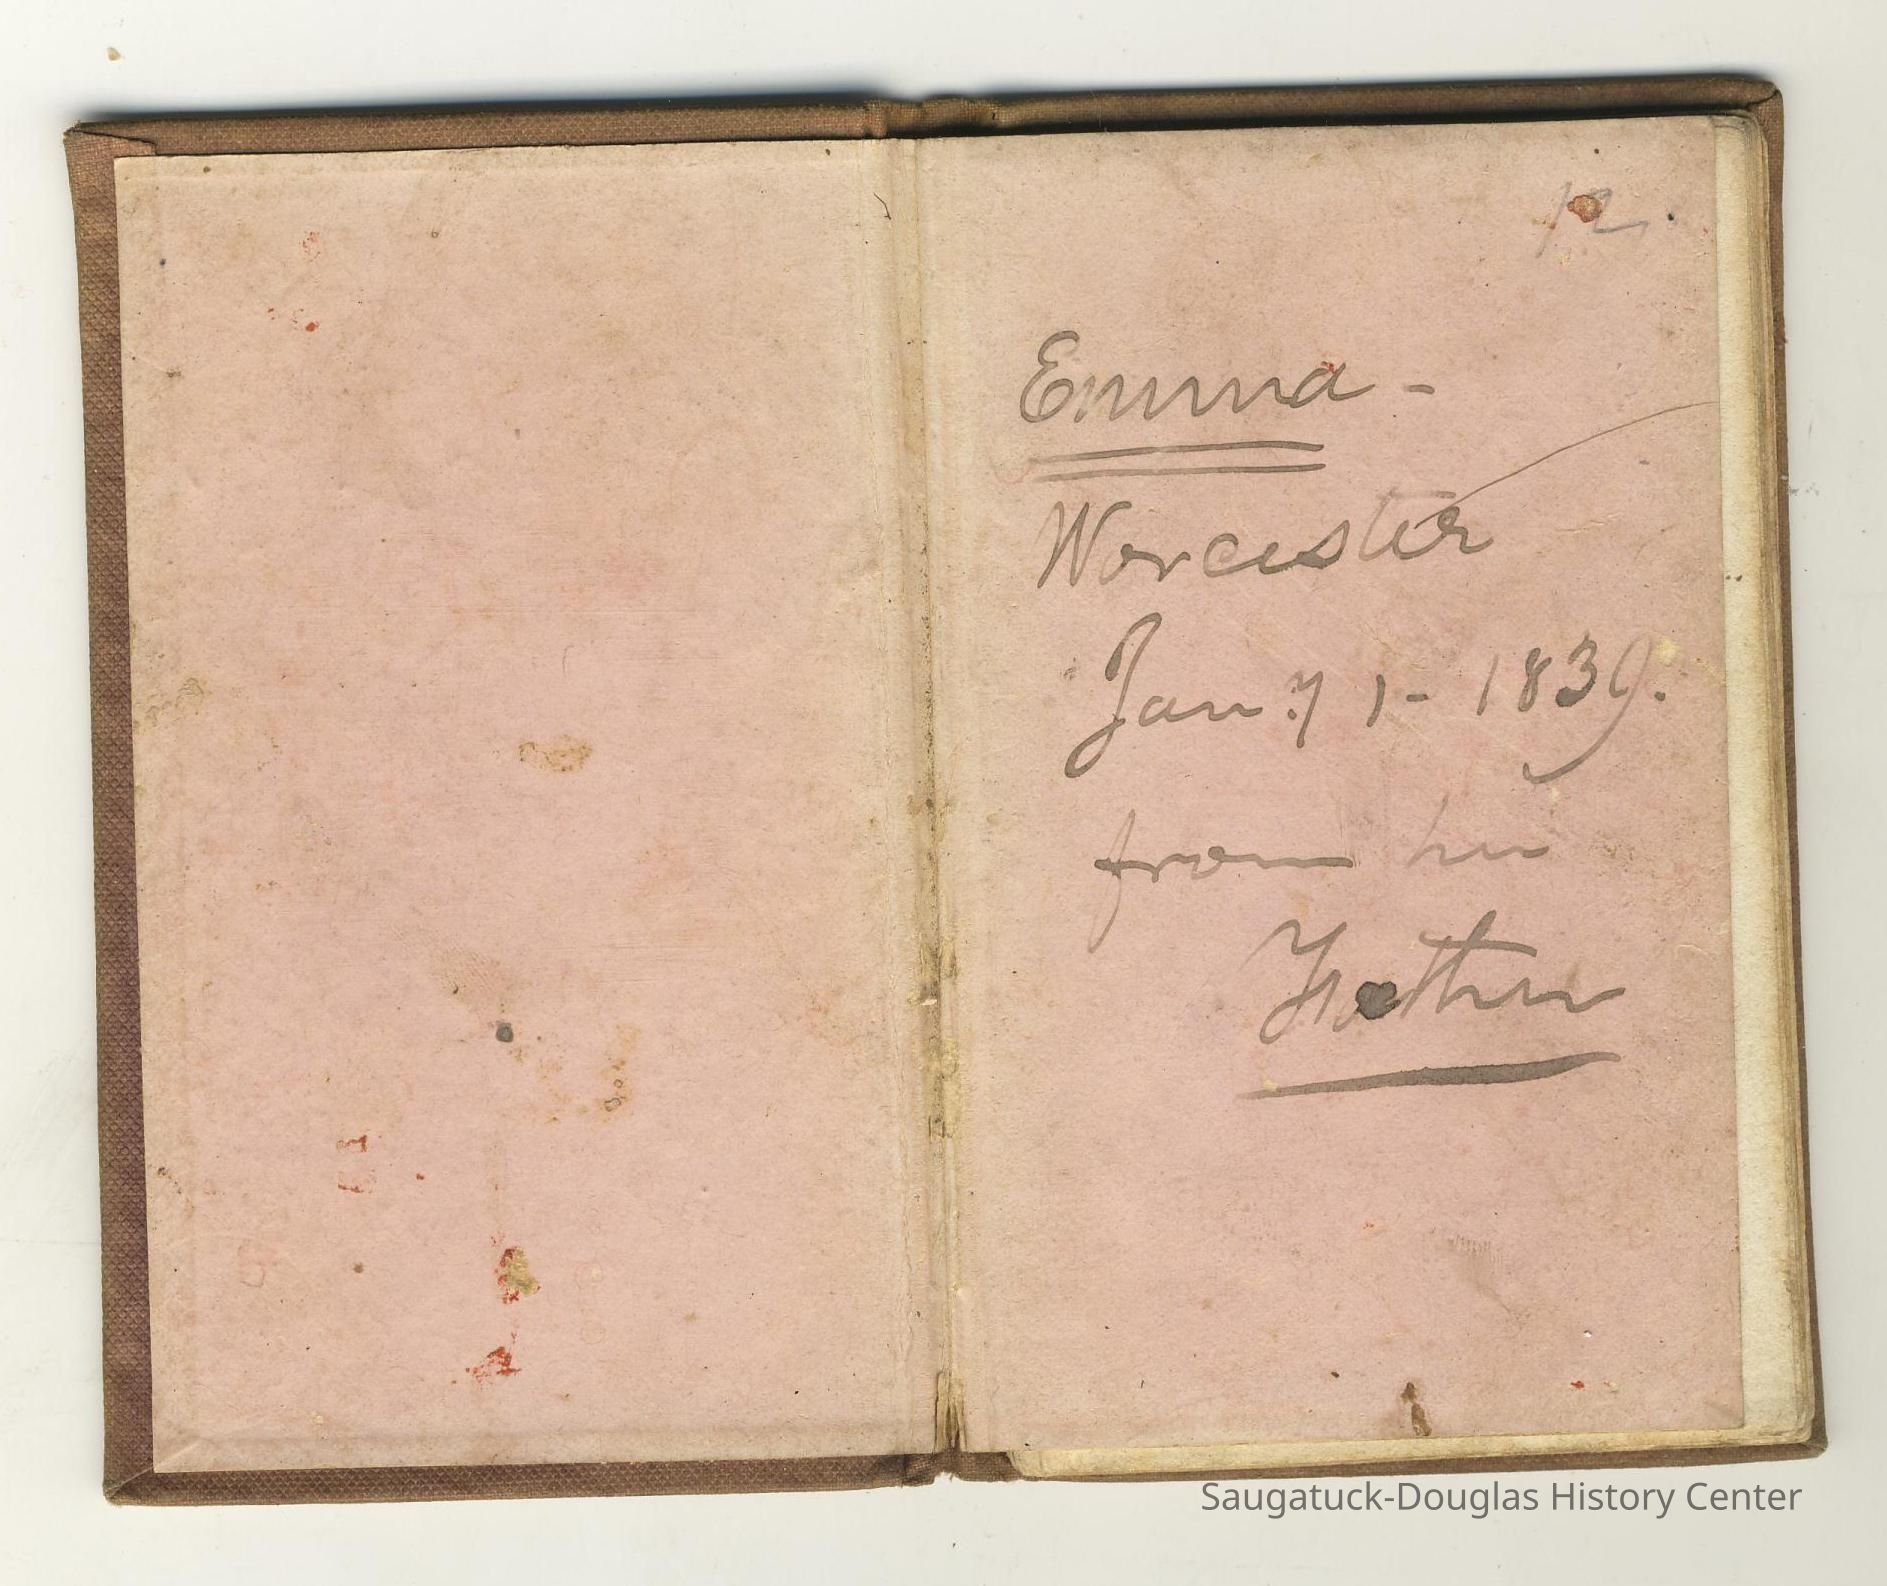 12.
Emma -
Worcester
Jan:y 1 - 1839.
from her
Father
Saugatuck-Douglas History Center